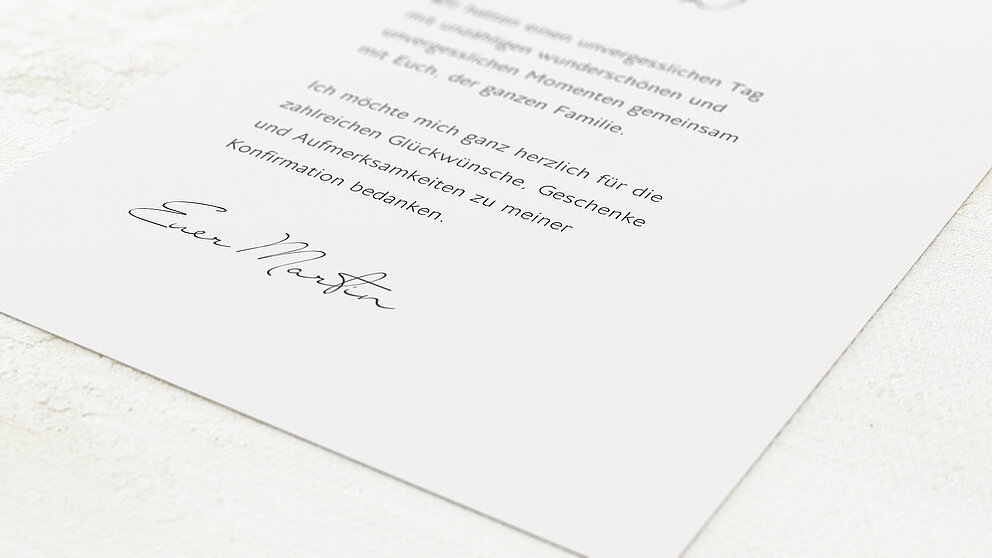 hatten einen unvergesslichen Tag
mit unzähligen wunderschönen und
unvergesslichen Momenten gemeinsam
mit Euch, der ganzen Familie.
Ich möchte mich ganz herzlich für die
zahlreichen Glückwünsche, Geschenke
und Aufmerksamkeiten zu meiner
Konfirmation bedanken.
Euer Martin